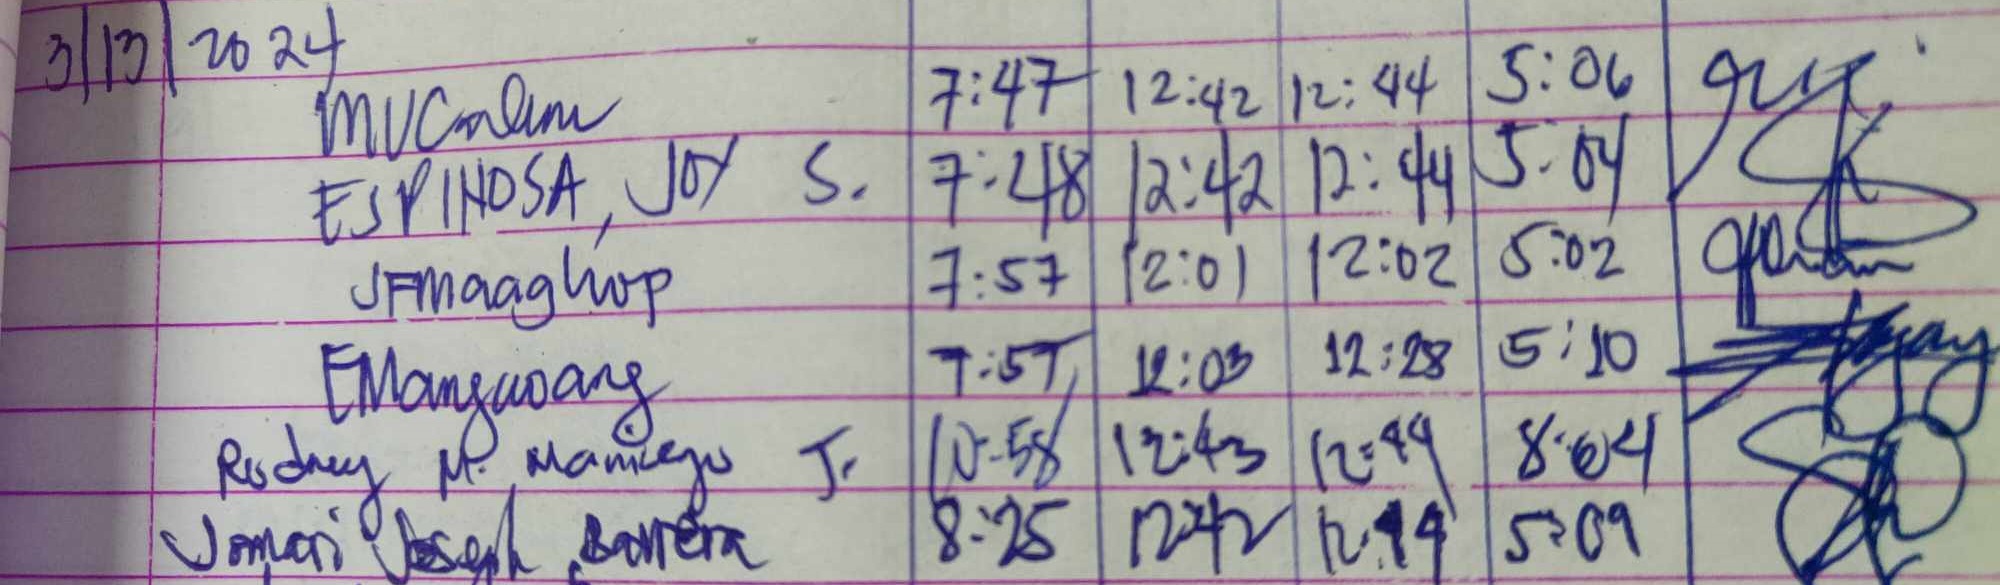 3/13/2024
7:47 12:42 12:44 5:06
ESPINOSA, JOY S. 7:48 12:42 12:44 5:04
JFMaaghop 7:57 12:01 12:02 5:02
EMangwang 7:57 12:03 12:28 5:10
Rodney M. Maniego Jr. 10:58 12:43 12:44 8:04
Jomari Joseph Barrera 8:25 12:42 12:44 5:09